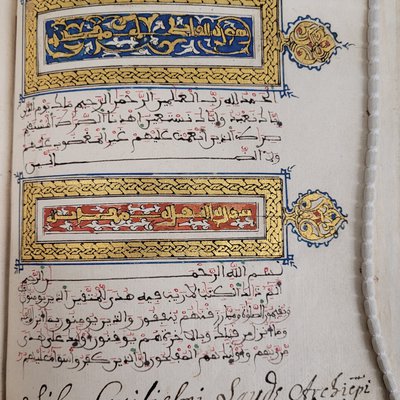 الحمد لله رب العلمين الرحمن الرحيم ملك يوم الدين
إياك نعبد وإياك نستعين اهدنا الصرط المستقيم
صرط الذين أنعمت عليهم غير المغضوب عليهم
ولا الضالين
سورة البقرة مدنية
بسم الله الرحمن الرحيم
الم ذلك الكتب لا ريب فيه هدى للمتقين الذين يومنون
ويقيمون الصلوة ومما رزقنهم ينفقون والذين يومنون بما أنزل
وما أنزل من قبلك وبالاخرة هم يوقنون أولئك على هدى
من ربهم وأولئك هم المفلحون إن الذين كفروا سواء عليهم
Liber Guilielmi Laude Archiepi